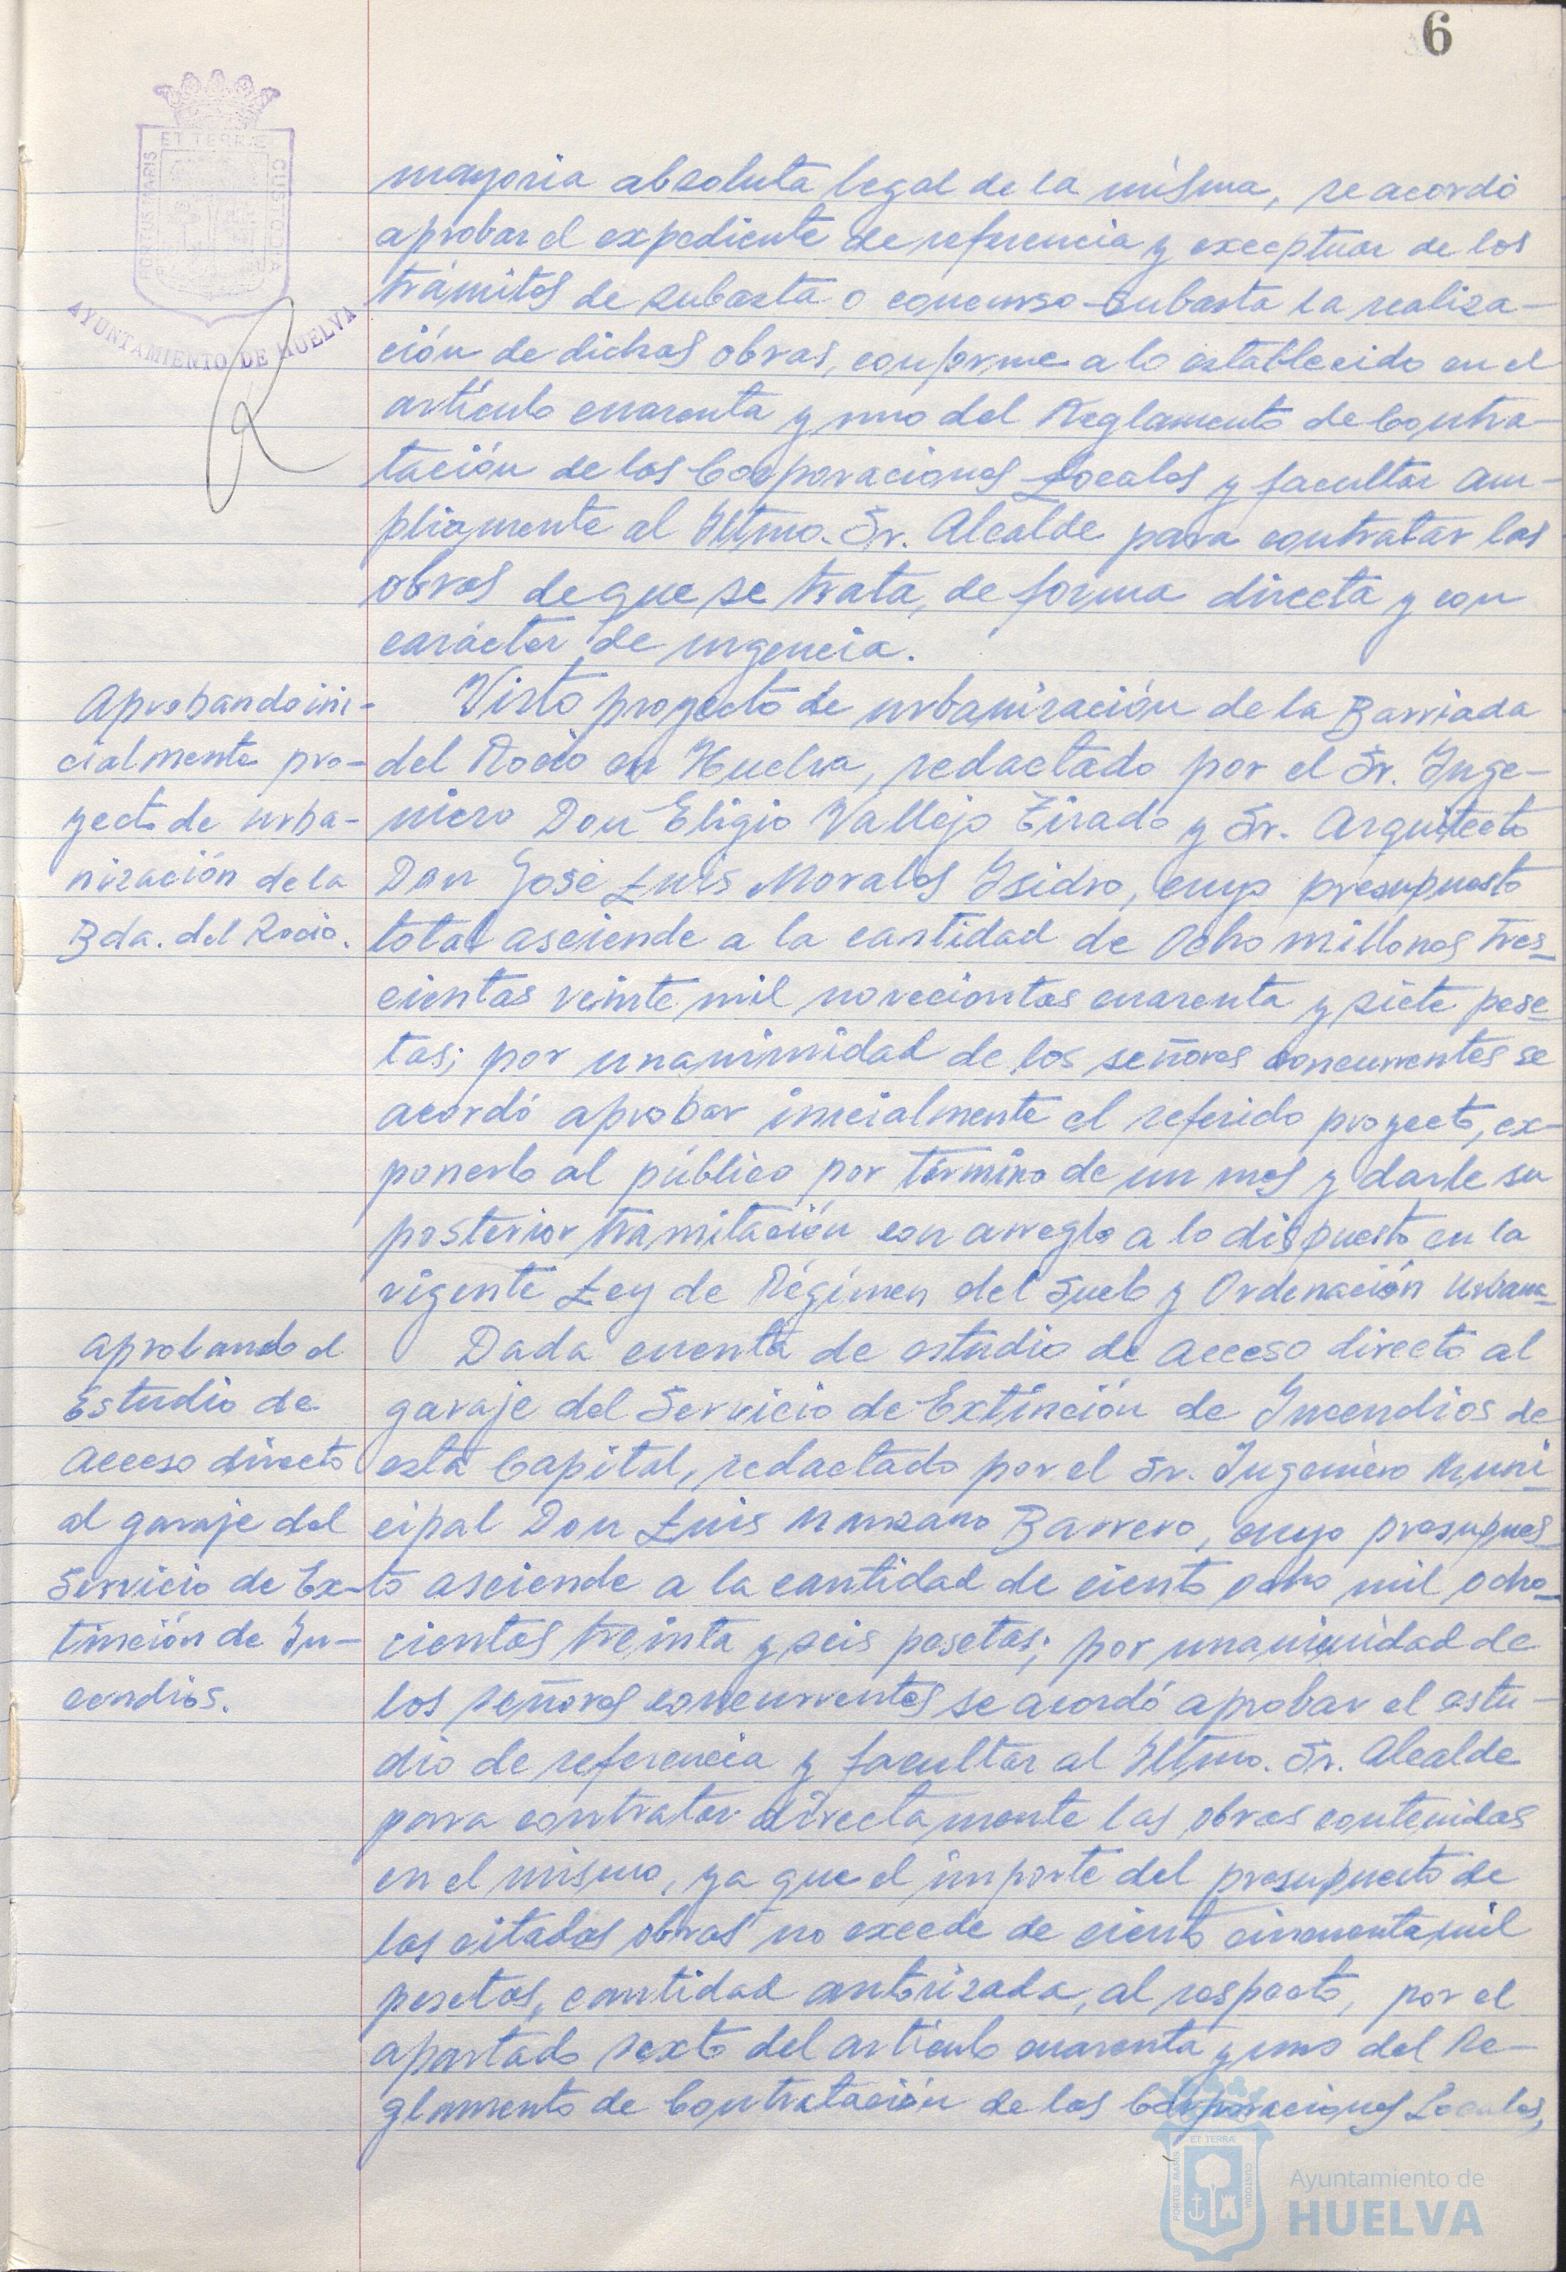 6
ET TERRÆ
PORTUS MARIS
CUSTODIA
AYUNTAMIENTO DE HUELVA
mayoria absoluta legal de la misma, se acordó
aprobar el expediente de referencia y exceptuar de los
trámites de subasta o concurso-subasta la realiza-
ción de dichas obras, conforme a lo establecido en el
artículo cuarenta y uno del Reglamento de Contra-
tación de las Corporaciones Locales y facultar am-
pliamente al Iltmo. Sr. Alcalde para contratar las
obras de que se trata, de forma directa y con
carácter de urgencia.
Aprobando ini-
cialmente pro-
yecto de urba-
nización de la
Bda. del Rocio.
Visto proyecto de urbanización de la Barriada
del Rocio en Huelva, redactado por el Sr. Inge-
niero Don Eligio Vallejo Tirado y Sr. Arquitecto
Don José Luis Morales Isidro, cuyo presupuesto
total asciende a la cantidad de Ocho millones tres-
cientas veinte mil novecientas cuarenta y siete pese-
tas; por unanimidad de los señores concurrentes se
acordó aprobar inicialmente el referido proyecto, ex-
ponerlo al público por término de un mes y darle su
posterior tramitación con arreglo a lo dispuesto en la
vigente Ley de Régimen del Suelo y Ordenación Urbana-
Aprobando el
Estudio de
Acceso directo
al garaje del
Servicio de Ex-
tinción de In-
cendios.
Dada cuenta de estudio de acceso directo al
garaje del Servicio de Extinción de Incendios de
esta Capital, redactado por el Sr. Ingeniero Muni-
cipal Don Luis Manzano Barrero, cuyo presupues-
to asciende a la cantidad de ciento ocho mil ocho-
cientas treinta y seis pesetas; por unanimidad de
los señores concurrentes se acordó aprobar el estu-
dio de referencia y facultar al Iltmo. Sr. Alcalde
para contratar directamente las obras contenidas
en el mismo, ya que el importe del presupuesto de
las citadas obras no excede de ciento cincuenta mil
pesetas, cantidad autorizada, al respecto, por el
apartado sexto del artículo cuarenta y uno del Re-
glamento de Contratación de las Corporaciones Locales,
ET TERRÆ
PORTUS MARIS
CUSTODIA
Ayuntamiento de
HUELVA